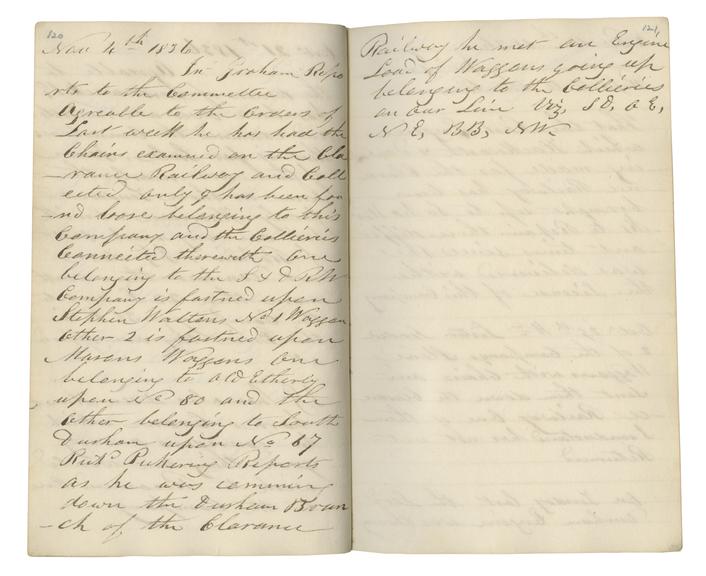 120
Nov 4th 1836
Jno Graham Repo
rts to the Committee
Agreable to the Orders of
Last week he has had the
Chains examined on the Cla
-rance Railway and Coll
ected only 9 has been fou
-nd loose belonging to this
Company and the Collieries
Connected therewith One
belonging to the S & D RW
Company is fastned upon
Stephen Waltons No 1 Waggon
Other 2 is fastned upon
Masons Waggons One
belonging to old Etherly
upon No 80 and the
Other belonging to South
Durham upon No 67
Richd Pickering Reports
as he was comming
down the Durham Bran
-ch of the Clarance
121
Railway he met an Engine
Load of Waggons going up
belonging to the Collieries
on our Line Viz, SD, OE,
NE, BB, NW